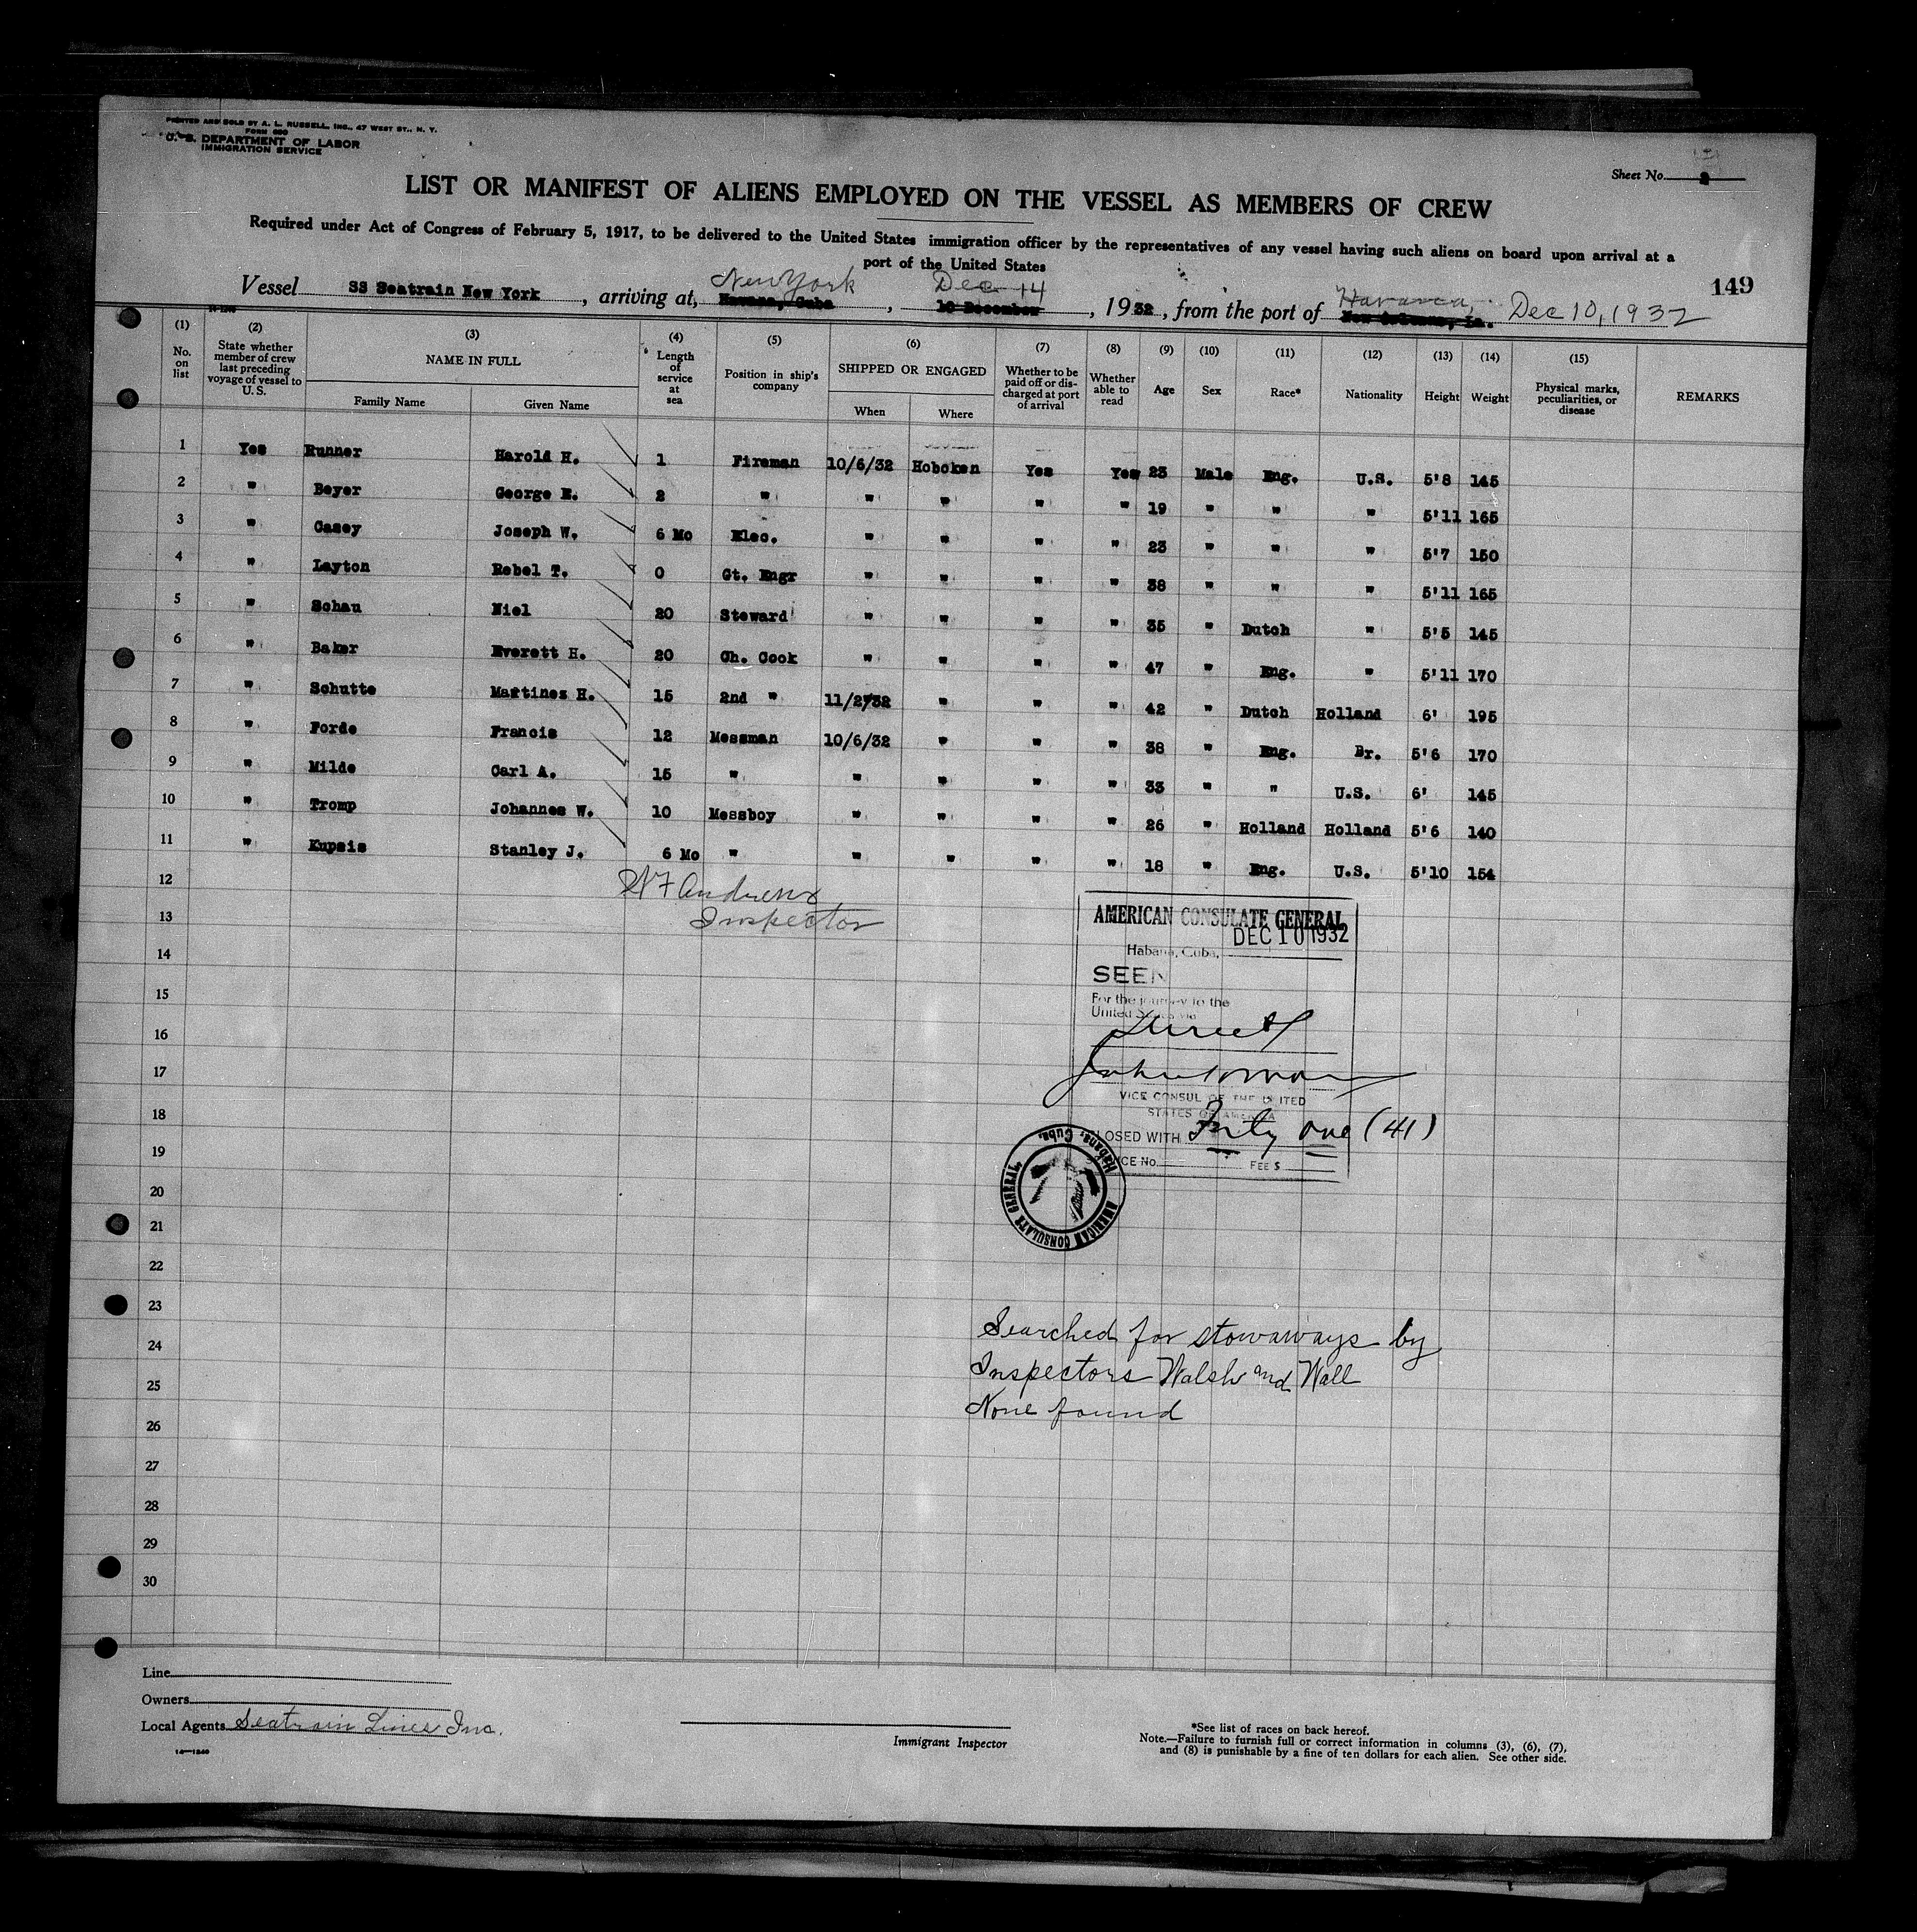 PRINTED AND SOLD BY A. L. RUSSELL, INC., 47 WEST ST., N. Y.
FORM 680
U. S. DEPARTMENT OF LABOR
IMMIGRATION SERVICE
Sheet No. 2
LIST OR MANIFEST OF ALIENS EMPLOYED ON THE VESSEL AS MEMBERS OF CREW
Required under Act of Congress of February 5, 1917, to be delivered to the United States immigration officer by the representatives of any vessel having such aliens on board upon arrival at a
port of the United States
149
New York Dec 14 Havana, Dec 10, 1932
Vessel SS Seatrain New York, arriving at, Havana, Cuba, 10 December, 1932, from the port of New Orleans, La.
(1) No. on list
(2) State whether member of crew last preceding voyage of vessel to U. S.
(3) NAME IN FULL Family Name Given Name
(4) Length of service at sea
(5) Position in ship's company
(6) SHIPPED OR ENGAGED When Where
(7) Whether to be paid off or discharged at port of arrival
(8) Whether able to read
(9) Age
(10) Sex
(11) Race*
(12) Nationality
(13) Height
(14) Weight
(15) Physical marks, peculiarities, or disease
REMARKS
1 Yes Runner Harold H. 1 Fireman 10/6/32 Hoboken Yes Yes 23 Male Eng. U.S. 5'8 145
2 " Beyer George E. 2 " " " " " 19 " " " 5'11 165
3 " Casey Joseph W. 6 Mo Elec. " " " " 23 " " " 5'7 150
4 " Layton Rebel T. 0 Gt. Engr " " " " 38 " " " 5'11 165
5 " Schau Niel 20 Steward " " " " 35 " Dutch " 5'5 145
6 " Baker Everett H. 20 Ch. Cook " " " " 47 " Eng. " 5'11 170
7 " Schutte Martines H. 15 2nd " 11/2/32 " " " 42 " Dutch Holland 6' 195
8 " Forde Francis 12 Messman 10/6/32 " " " 38 " Eng. Br. 5'6 170
9 " Milde Carl A. 15 " " " " " 33 " " U.S. 6' 145
10 " Tromp Johannes W. 10 Messboy " " " " 26 " Holland Holland 5'6 140
11 " Kupsis Stanley J. 6 Mo " " " " " 18 " Eng. U.S. 5'10 154
12
13
14
15
16
17
18
19
20
21
22
23
24
25
26
27
28
29
30
Andrews
Inspector
AMERICAN CONSULATE GENERAL
DEC 10 1932
Habana, Cuba,
SEEN
For the journey to the
United States via
Direct
VICE CONSUL OF THE UNITED
STATES OF AMERICA
CLOSED WITH Forty one (41)
SERVICE No. FEE $
AMERICAN CONSULATE GENERAL, Habana, Cuba.
Searched for stowaways by
Inspectors Walsh and Wall
None found
Line
Owners
Local Agents Seatrain Lines Inc.
14—1240
Immigrant Inspector
*See list of races on back hereof.
Note.—Failure to furnish full or correct information in columns (3), (6), (7),
and (8) is punishable by a fine of ten dollars for each alien. See other side.